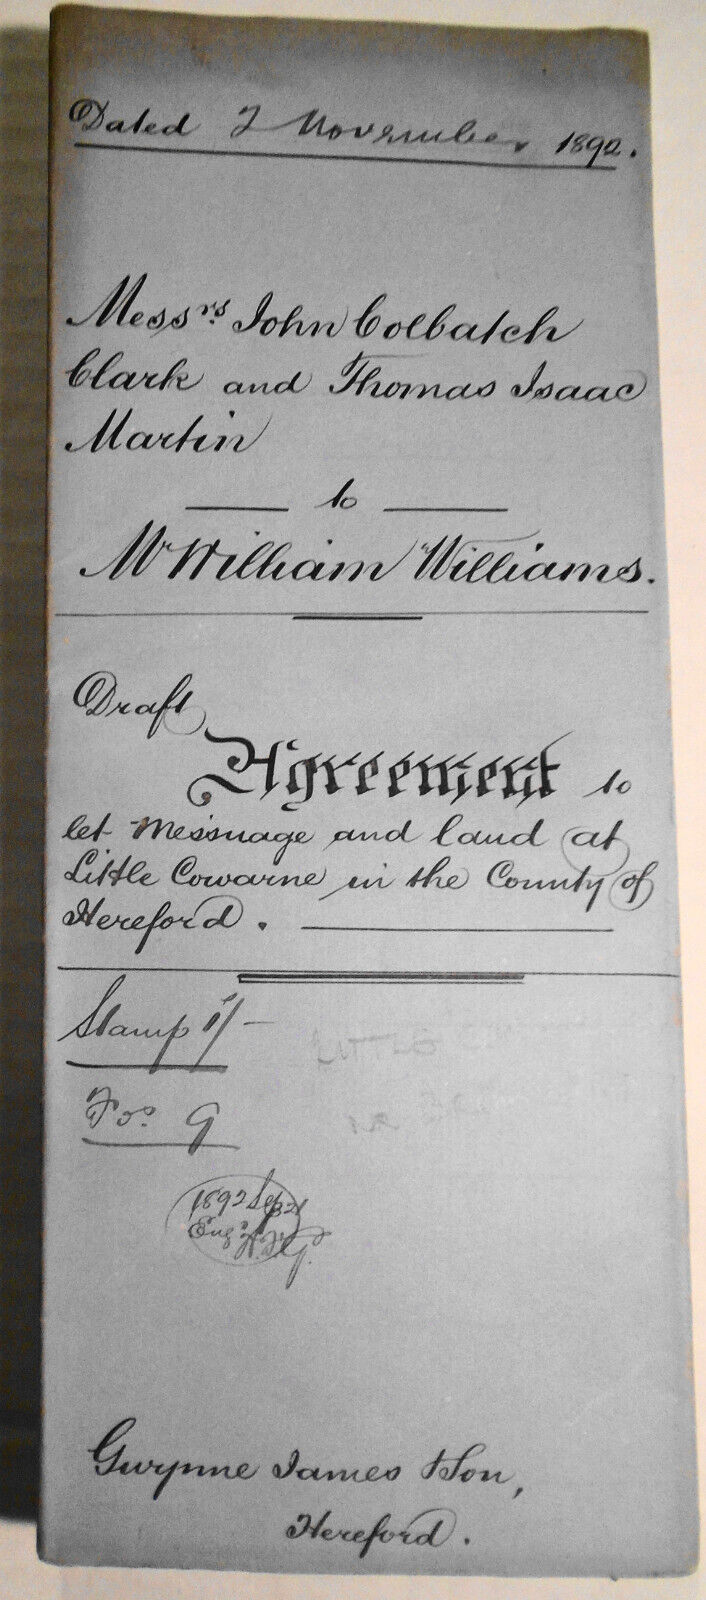 Dated 2 November 1892.
Mess.rs John Colbatch
Clark and Thomas Isaac
Martin
to
Mr William Williams.
Draft
Agreement to
let Messuage and land at
Little Cowarne in the County of
Hereford.
Stamp 1/-
Fos. 9
1892 Sep
Eng.
Gwynne James & Son,
Hereford.
LITTLE